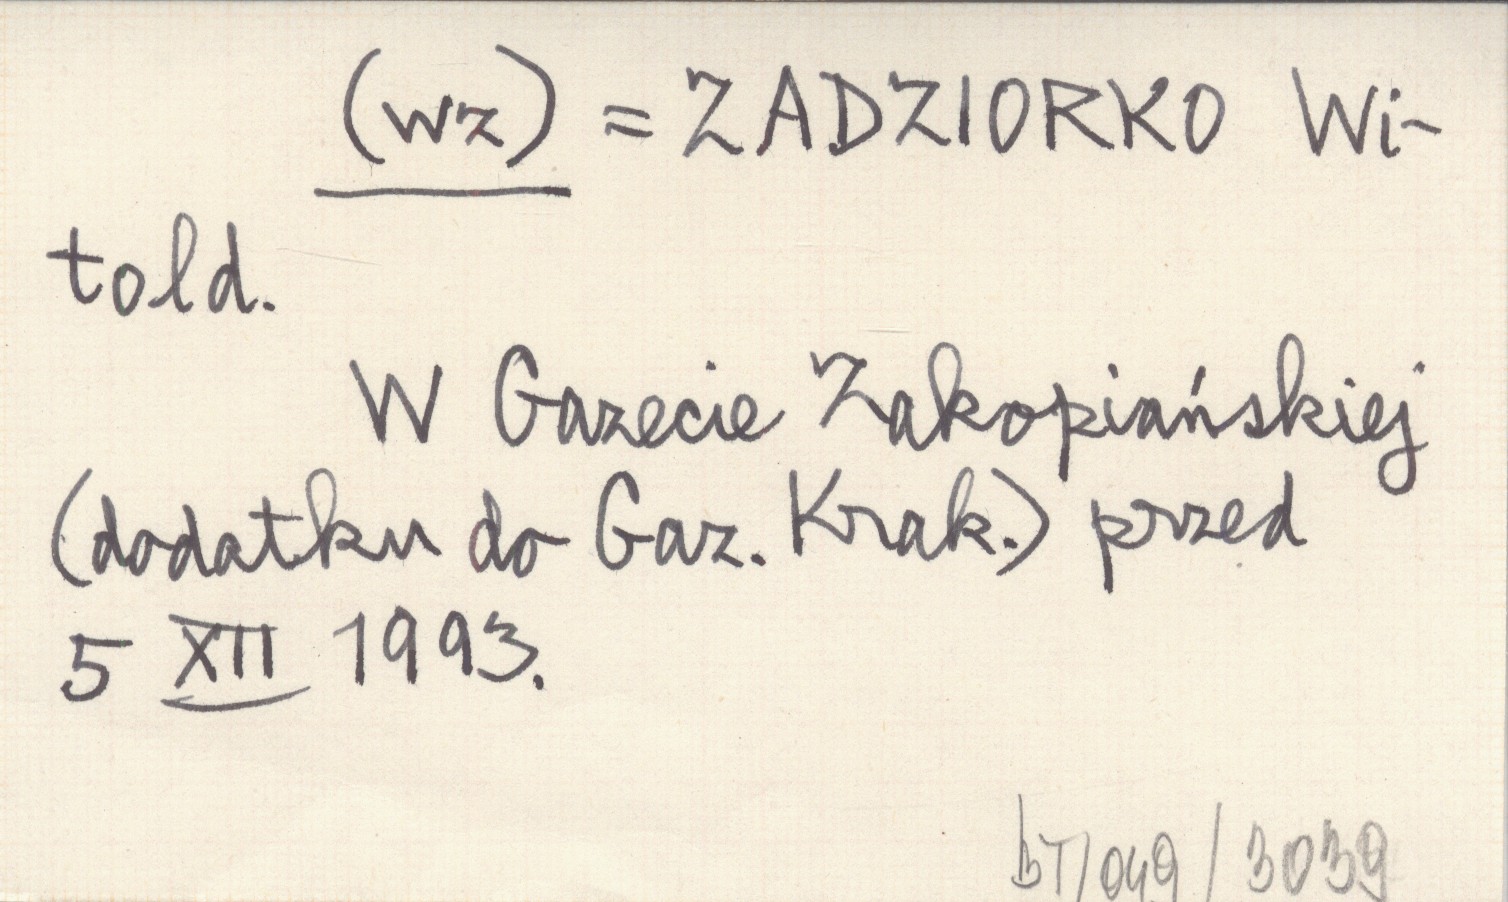 (wz) = ZADZIORKO Wi-
told.
W Gazecie Zakopiańskiej
(dodatku do Gaz. Krak.) przed
5 XII 1993.
BT/049/3039